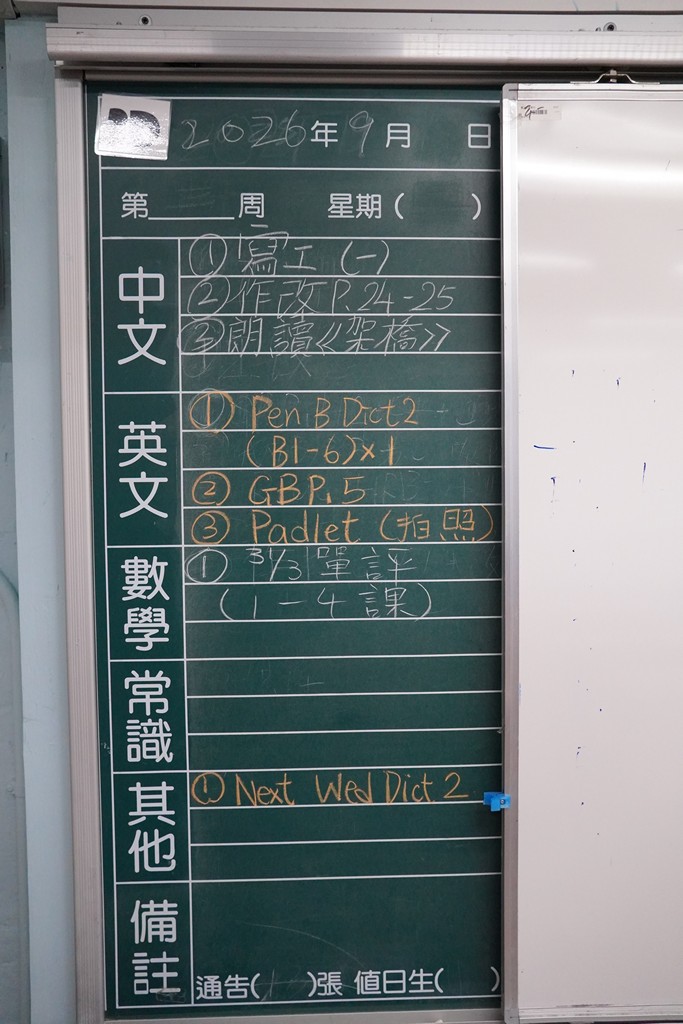 2026年9月 日
第 周 星期( )
中文
① 寫工 (一)
② 作改 P.24-25
③ 朗讀《架橋》
英文
① Pen B Dict 2
(B1-6)x1
② GB P.5
③ Padlet (拍照)
數學
① 31/3 單評
(1-4課)
常識
其他
① Next Wed Dict. 2
備註
通告( )張 值日生( )